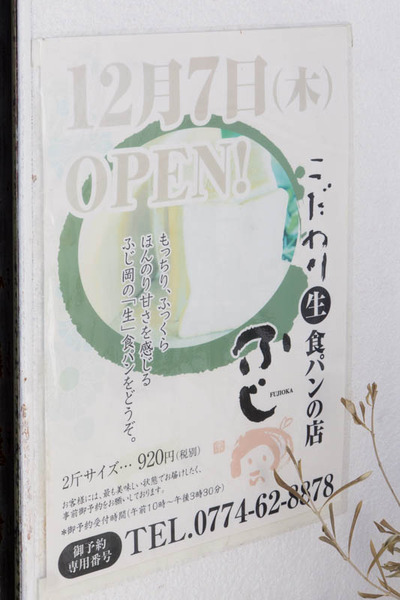 12月7日(木)
OPEN!
こだわり生食パンの店
ふじ
FUJIOKA
もっちり、ふっくら
ほんのり甘さを感じる
ふじ岡の「生」食パンをどうぞ。
2斤サイズ… 920円(税別)
お客様には、最も美味しい状態でお届けしたく、
事前御予約をお願いしております。
*御予約受付時間(午前10時〜午後3時30分)
御予約
専用番号
TEL.0774-62-8878